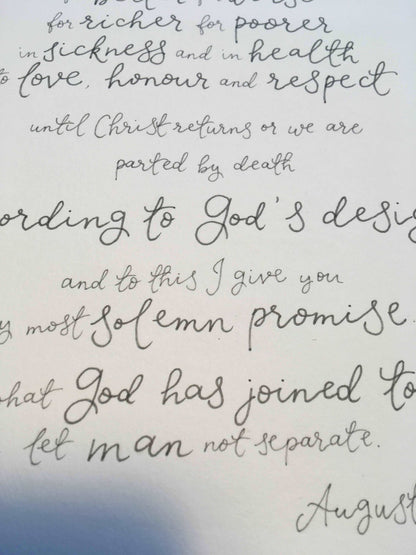 for richer for poorer
in sickness and in health
to love, honour and respect
until Christ returns or we are
parted by death
ording to God's desig
and to this I give you
y most solemn promise.
hat God has joined to
let man not separate.
August